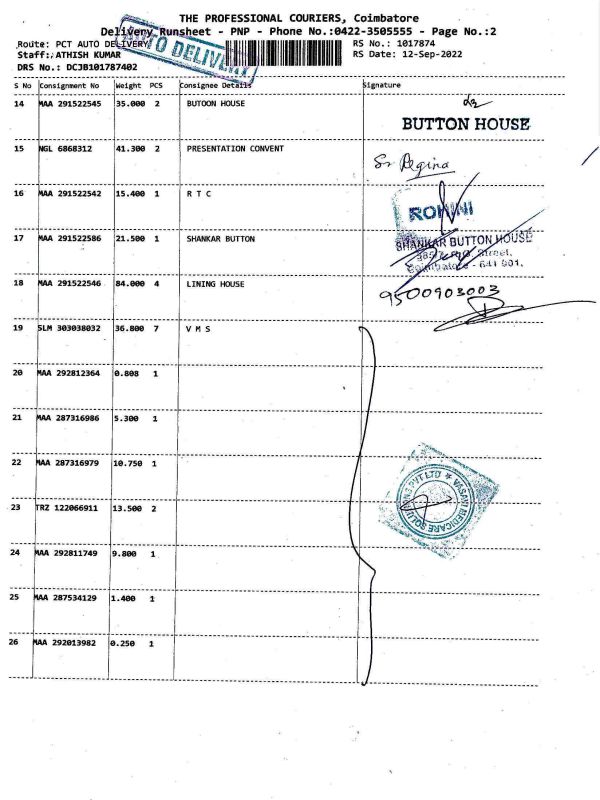 THE PROFESSIONAL COURIERS, Coimbatore
Delivery Runsheet - PNP - Phone No.:0422-3505555 - Page No.:2
Route: PCT AUTO DELIVERY
AUTO DELIVERY
RS No.: 1017874
Staff: ATHISH KUMAR
RS Date: 12-Sep-2022
DRS No.: DCJB101787402
S No Consignment No Weight PCS Consignee Details Signature
14 MAA 291522545 35.000 2 BUTOON HOUSE
BUTTON HOUSE
15 NGL 6868312 41.300 2 PRESENTATION CONVENT
Sr Regina
16 MAA 291522542 15.400 1 R T C
ROHINI
17 MAA 291522586 21.500 1 SHANKAR BUTTON
SHANKAR BUTTON HOUSE
Street,
Coimbatore - 641 001.
18 MAA 291522546 84.000 4 LINING HOUSE
9500903003
19 SLM 303038032 36.800 7 V M S
20 MAA 292812364 0.808 1
21 MAA 287316986 5.300 1
22 MAA 287316979 10.750 1
VASAN MEDICARE SOLUTIONS PVT LTD
23 TRZ 122066911 13.500 2
24 MAA 292811749 9.800 1
25 MAA 287534129 1.400 1
26 MAA 292013982 0.250 1